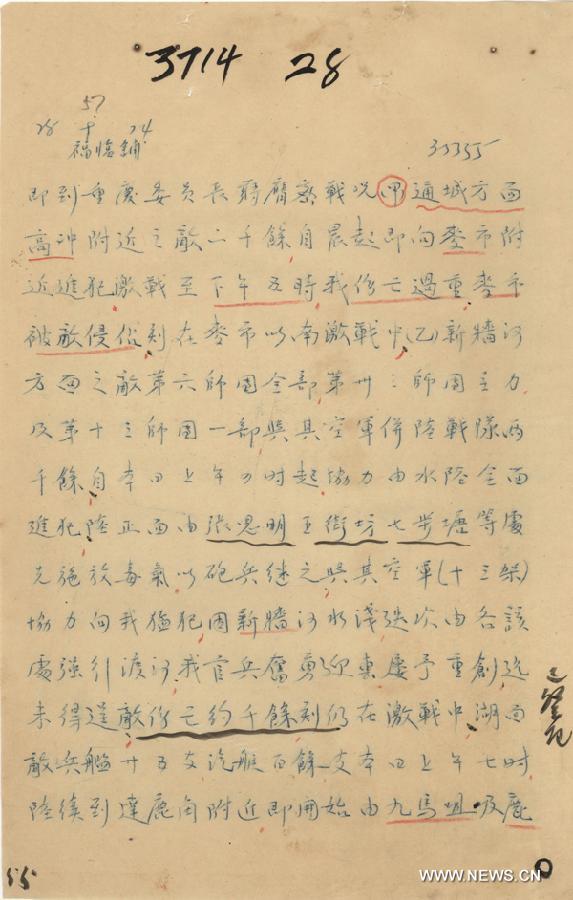 3714 28
57
28 十 24
福臨鋪
33355
即到重慶委員長蔣膺密戰况(甲)通城方面
高冲附近之敵二千餘自晨起即向麥市附
近進犯激戰至下午五時我傷亡過重麥市
被敵侵佔刻在麥市以南激戰中(乙)新牆河
方面之敵第六師團全部第卅三師團主力
及第十三師團一部與其空軍併陸戰隊兩
千餘自本日上午 时起協力由水陸全面
進犯陸正面由張恩明王街坊七步塘等處
先施放毒氣以砲兵繼之與其空軍(十三架)
協力向我猛犯因新牆河水淺迭次由各該
處強引渡河我官兵奮勇迎 屢予重創迄
未得逞敵傷亡約千餘刻仍在激戰中湖面
敵兵艦廿五支汽艇百餘支本日上午七时
陸續到達鹿角附近即開始由九馬咀及鹿
55
WWW.NEWS.CN